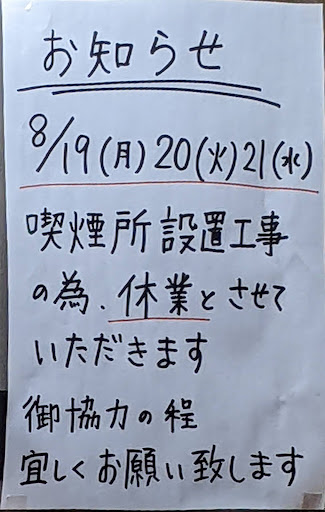 お知らせ
8/19(月)20(火)21(水)
喫煙所設置工事
の為、休業とさせて
いただきます
御協力の程
宜しくお願い致します